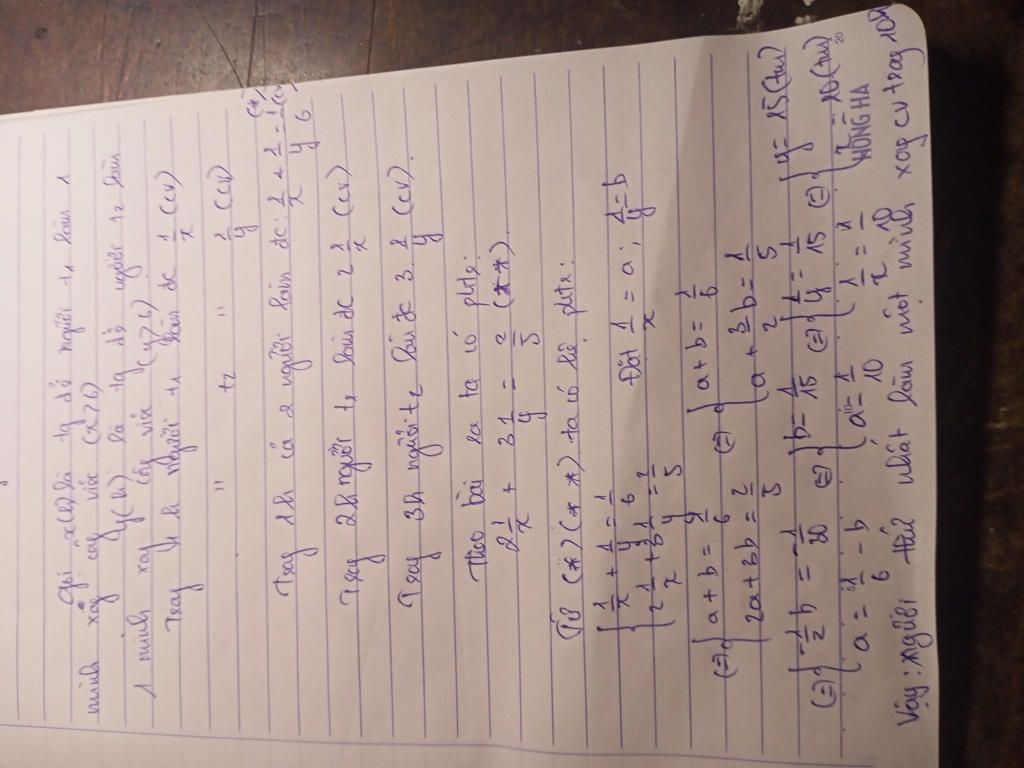 Gọi x(h) là tg để người t1 làm 1
mình xog công việc (x>6)
y(h) là tg để người t2 làm
1 mình xog công việc (y>6)
Trog 1 h người t1 làm dc 1/x (cv)
" t2 " 1/y (cv)
Trog 1h cả 2 người làm dc: 1/x + 1/y = 1/6 (cv) (*)
Trog 2h người t1 làm dc 2 1/x (cv)
Trog 3h người t2 làm dc 3. 1/y (cv).
Theo bài ra ta có phtr:
2 1/x + 3 1/y = 2/5 (**).
Từ (*) (**) ta có hệ phtr:
{ 1/x + 1/y = 1/6
{ 2 1/x + 3 1/y = 2/5 Đặt 1/x = a ; 1/y = b
(=) { a + b = 1/6 (=) { a + b = 1/6
{ 2a + 3b = 2/5 { a + 3/2 b = 1/5
(=) { -1/2 b = -1/30 (=) { b = 1/15 (=) { 1/y = 1/15 (=) { y = 15 (tm)
{ a = 1/6 - b { a = 1/10 { 1/x = 1/10 { x = 10 (tm)
HỒNG HÀ
Vậy: người thứ nhất làm một mình xog cv trog 10h